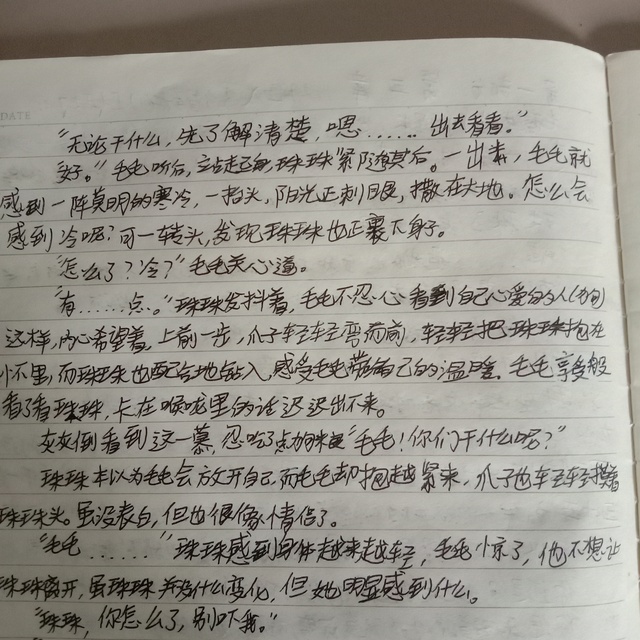 DATE
“无论干什么,先了解清楚,嗯…… 出去看看。”
“好。”毛毛听后,立站起身,珠珠紧随其后。一出来,毛毛就
感到一阵莫明的寒冷,一抬头,阳光正刺眼,撒在大地。怎么会
感到冷呢?可一转头,发现珠珠也正裹下身子。
“怎么了?冷?”毛毛关心道。
“有……点。”珠珠发抖着,毛毛不忍心看到自己心爱的人(狗)
这样,内心希望着,上前一步,爪子轻轻弯而前,轻轻把珠珠抱在
怀里,而珠珠也配合地钻入,感受毛毛带给自己的温暖。毛毛享受般
看了看珠珠,卡在喉咙里的话迟迟出不来。
女女倒看到这一慕,忍吃了点狗来“毛毛!你们干什么呢?”
珠珠本以为毛毛会放开自己,而毛毛却抱越紧来,爪子也轻轻摸着
珠珠头。虽没表白,但也很像情侣了。
“毛毛……”珠珠感到身体越来越轻,毛毛惊了,他不想让
珠珠离开,虽珠珠并没什么变化,但她明显感到什么。
“珠珠,你怎么了,别吓我。”